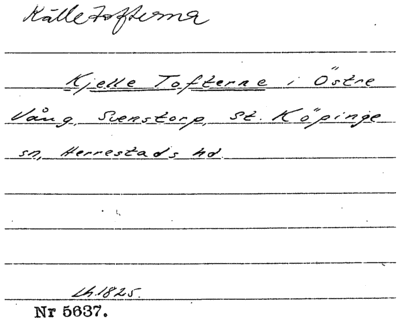 Källetofterna
Kjelle Tofterne i Östre
Vång, Svenstorp, St. Köpinge
sn, Herrestads hd
Lh 1825.
Nr 5637.